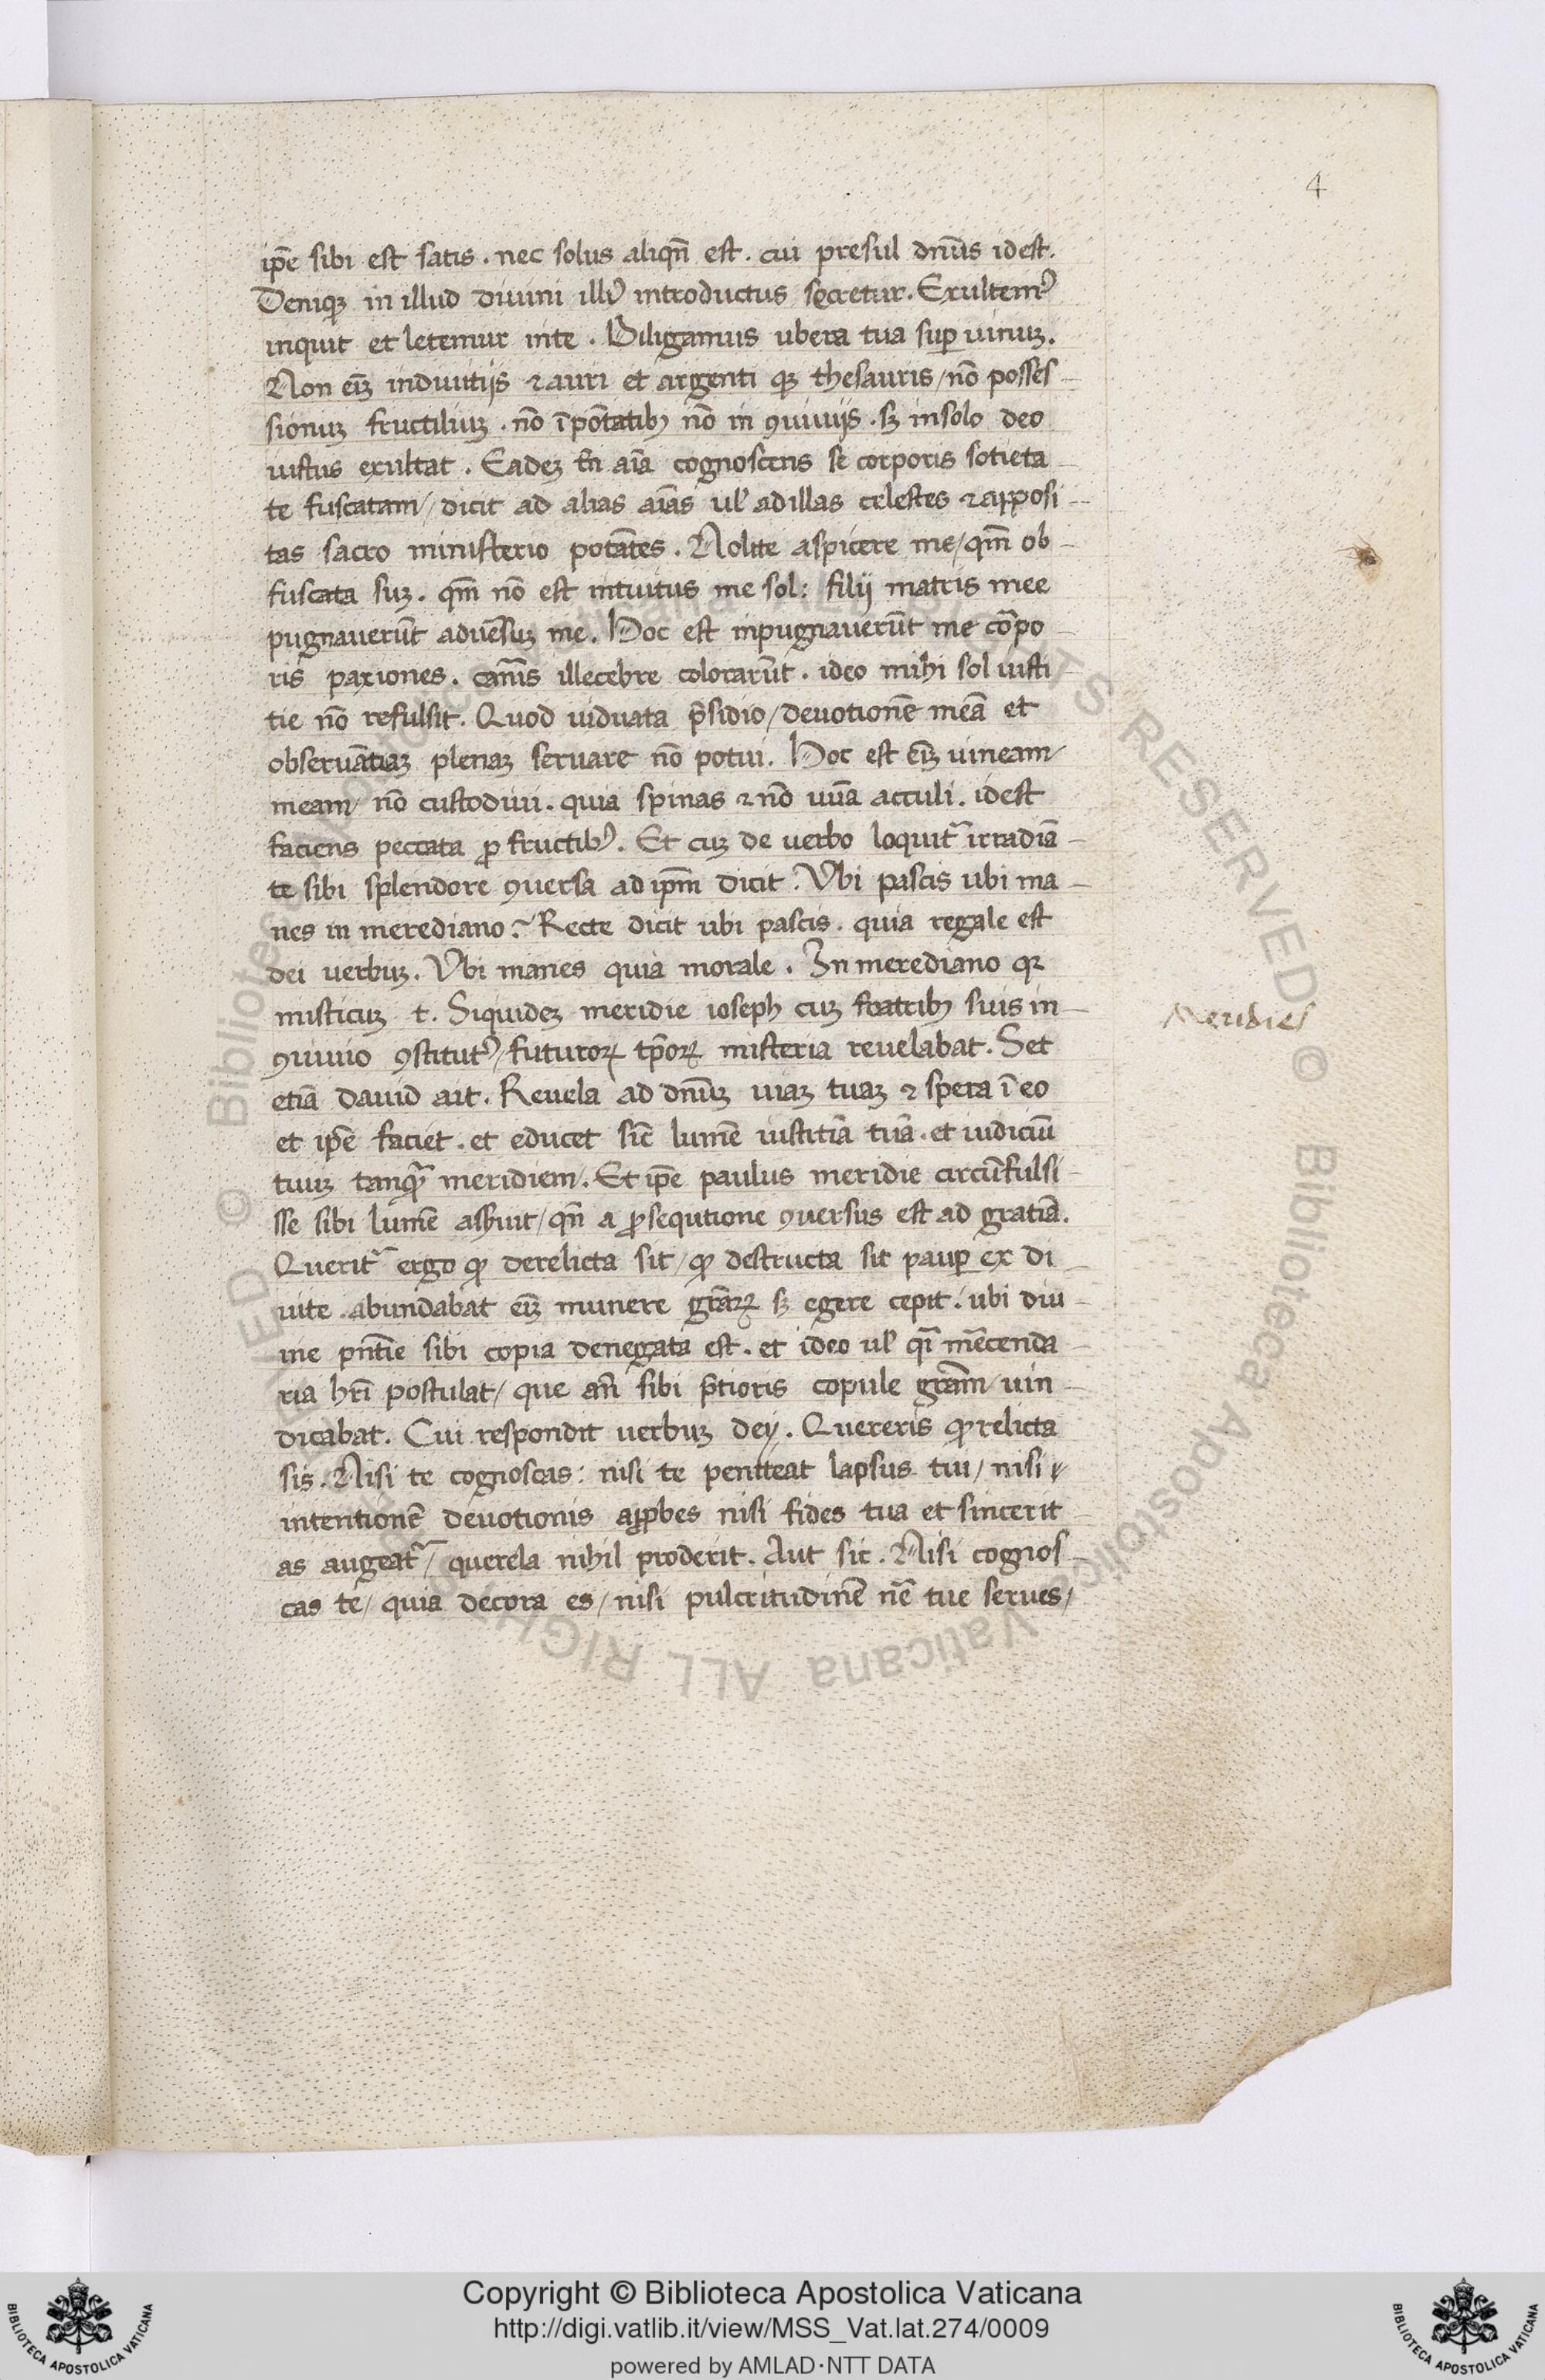 4
ip̄e sibi est satis . nec solus aliqn̄ est . cui presul dn̄us id est .
Deniqꝫ in illud diuini illiꝰ introductus secretur . Exultemꝰ
inquit et letemur in te . Diligamus ubera tua suꝑ uinuꝫ .
Non eīꝫ in diuitijs ⁊ auri et argenti qꝫ thesauris / nō posses-
sionuꝫ fructiliuꝫ . nō ī potātibꝫ nō in ꝯuiuijs . sꝫ in solo deo
iustus exultat . Eadeꝫ tn̄ aīa cognoscens se corporis sotieta-
te fuscatam / dicit ad alias aīas ul̓ ad illas celestes ⁊ apposi-
tas sacro ministerio potātes . Nolite aspicere me / qm̄ ob-
fuscata suꝫ . qm̄ nō est intuitus me sol : filij matris mee
pugnauerūt aduēsuꝫ me . Hoc est inpugnauerūt me cōpo-
ris paxiones . carnīs illecebre colorarūt . ideo mihi sol iusti-
tie nō refulsit . Quod uiduata p̄sidio / deuotionē meā et
obseruātiaꝫ plenaꝫ seruare nō potui . Hoc est eīꝫ uineam /
meam / nō custodiui . quia spinas ⁊ nō uuā attuli . id est
faciens peccata ꝓ fructibꝰ . Et cuꝫ de uerbo loquit᷑ irradiā-
te sibi splendore ꝯuersa ad ip̄m dicit . Vbi pascis ubi ma-
nes in merediano ? Recte dicit ubi pascis . quia regale est
dei uerbuꝫ . Vbi manes quia morale . In merediano qꝫ
misticuꝫ t . Siquideꝫ meridie ioseph cuꝫ fratribꝫ suis in-
ꝯuiuio ꝯstitutꝰ / futuroꝝ tp̄oꝝ misteria reuelabat . Set
etiā dauid ait . Reuela ad dn̄uꝫ uiaꝫ tuaꝫ ⁊ spera ī eo
et ip̄e faciet . et educet sic̄ lumē iustitiā tuā . et iudiciū
tuuꝫ tanqꝫ meridiem . Et ip̄e paulus meridie circūfulsi-
sse sibi lumē asseruit / qn̄ a ꝓsequtione ꝯuersus est ad gratiā .
Querit᷑ ergo qꝫ derelicta sit / qꝫ destructa sit pauꝑ ex di
uite . abundabat eīꝫ munere grāꝝ sꝫ egere cepit . ubi diu-
ine pn̄tie sibi copia denegata est . et ideo ul̓ qī m̄cenda-
ria hr̄i postulat / que an̄ sibi p̄tioris copule grām / uin-
dicabat . Cui respondit uerbuꝫ dey . Quereris qꝫ relicta
sis . Nisi te cognoscas : nisi te peniteat lapsus tui / nisi
intentionē deuotionis aꝓbes nisi fides tua et sincerit-
as augeat᷑ / querela nihil proderit . Aut sic . Nisi cognos-
cas te / quia decora es / nisi pulcritudinē nr̄e tue serues /
Meridies
Copyright © Biblioteca Apostolica Vaticana
http://digi.vatlib.it/view/MSS_Vat.lat.274/0009
powered by AMLAD·NTT DATA
BIBLIOTECA APOSTOLICA VATICANA
BIBLIOTECA APOSTOLICA VATICANA
© Biblioteca Apostolica Vaticana ALL RIGHTS RESERVED © Biblioteca Apostolica Vaticana ALL RIGHTS RESERVED